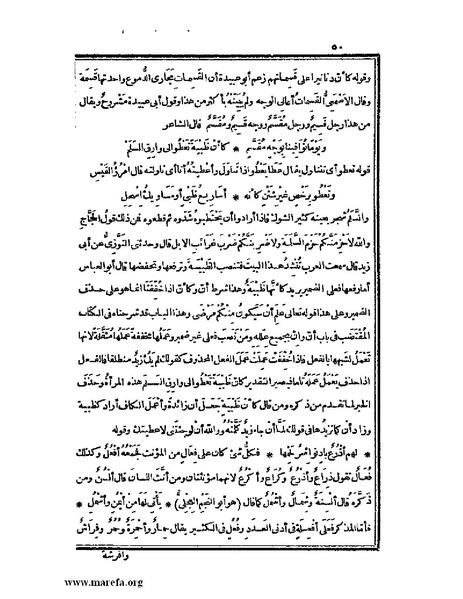 ٥٠
وقوله كأن دنانيرا على قسماتهم زعم أبو عبيدة أن القسمات مجارى الدموع واحدتها قسمة
وقال الاصمعى القسمات أعالى الوجه ولم يبينه بأكثر من هذا وقول أبى عبيدة مشروح ويقال
من هذا رجل قسيم ورجل مقسم ووجه قسيم ومقسم قال الشاعر
ويوما توافينا بوجه مقسم * كأن ظبية تعطو الى وارق السلم
قوله تعطو أى تتناول يقال عطا يعطو اذا تناول وأعطيته أنا أى ناولته قال امرؤ القيس
وتعطو برخص غير شثن كأنه * أساريع ظبى أو مساويك اسحل
والسلم شجر بعينه كثير الشوك فاذا أرادوا أن يحتطبوه شدوه ثم قطعوه فمن ذلك قول الحجاج
والله لاحزمنكم حزم السلمة ولاضربنكم ضرب غرائب الابل قال وحدثنى التوزى عن أبى
زيد قال سمعت العرب تنشد هذا البيت فتنصب الظبية وترفعها وتخفضها قال أبو العباس
أما رفعها فعلى الضمير يريد كأنها ظبية وهذا شرط أن وكأن اذا خففتا انما هو على حذف
الضمير وعلى هذا قوله تعالى علم أن سيكون منكم مرضى وهذا الباب قد شرحناه فى الكتاب
المقتضب فى باب أن وان بجميع علله ومن نصب فعلى غير ضمير وأعملها مخففة عملها مثقلة لانها
تعمل لشبهها بالفعل فاذا خففت عملت عمل الفعل المحذوف كقولك لم يك زيد منطلقا فالفعل
اذا حذف يعمل عمله تاما فيصير التقدير كأن ظبية تعطو الى وارق السلم هذه المرأة وحذف
الخبر لما تقدم من ذكره ومن قال كأن ظبية جعل أن زائدة وأعمل الكاف أراد كظبية
وزاد أن كما تزيدها فى قولك لما أن جاء زيد كلمته ووالله أن لو جئتنى لاعطيتك وقوله
لهم أذرع باد نواشر لحمها * فكل شئ كان على فعال من المؤنث فجمعه أفعل وكذلك
فعال تقول ذراع وأذرع وكراع وأكرع لانهما مؤنثتان ومن أنث اللسان قال ألسن ومن
ذكره قال ألسنة وشمال وأشمل كما قال (هو أبو النجم العجلى) * يأتى لها من أيمن وأشمل *
فأما المذكر فعلى أفعلة فى أدنى العدد وفعل فى الكثير يقال حمار وأحمرة وحمر وفراش
وافرشة
www.marefa.org